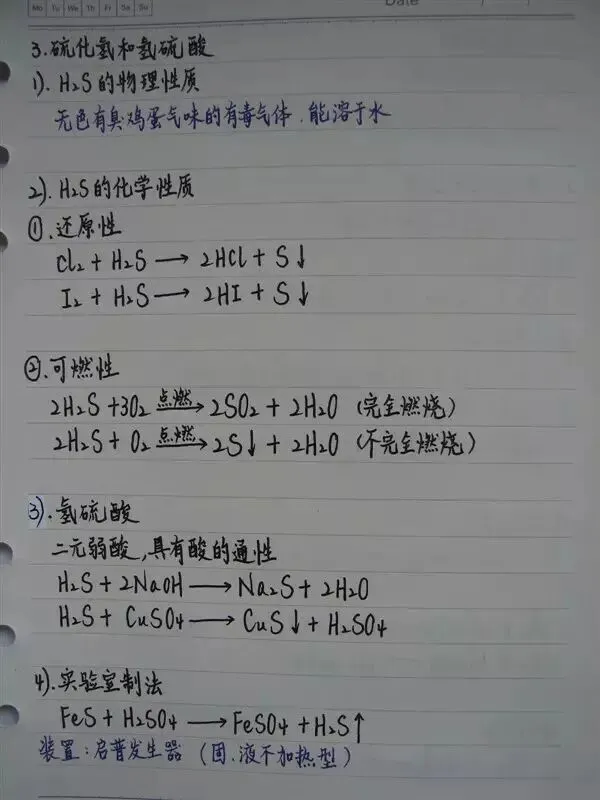 Mo Tu We Th Fr Sa Su
Date
3.硫化氢和氢硫酸
1). H₂S的物理性质
无色有臭鸡蛋气味的有毒气体.能溶于水
2). H₂S的化学性质
①.还原性
Cl₂ + H₂S → 2HCl + S↓
I₂ + H₂S → 2HI + S↓
②.可燃性
2H₂S +3O₂ 点燃→ 2SO₂ + 2H₂O (完全燃烧)
2H₂S + O₂ 点燃→ 2S↓ + 2H₂O (不完全燃烧)
3).氢硫酸
二元弱酸,具有酸的通性
H₂S + 2NaOH → Na₂S + 2H₂O
H₂S + CuSO₄ → CuS↓ + H₂SO₄
4).实验室制法
FeS + H₂SO₄ → FeSO₄ + H₂S↑
装置:启普发生器 (固.液不加热型)